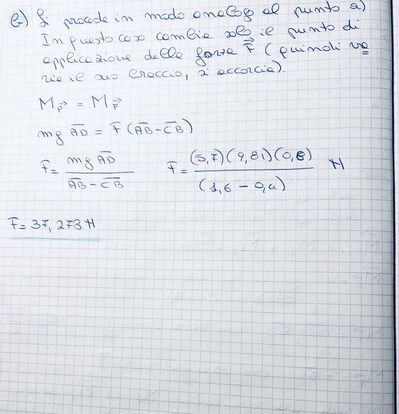 b) Si procede in modo analogo al punto a)
In questo caso cambia solo il punto di
applicazione della forza F⃗ (quindi va
ria il suo braccio, si accorcia).
M_P⃗ = M_F⃗
mg A̅D̅ = F (A̅B̅ - C̅B̅)
F = mg A̅D̅ / (A̅B̅ - C̅B̅) F = (5,7)(9,81)(0,8) / (1,6 - 0,4) N
F = 37,278 N